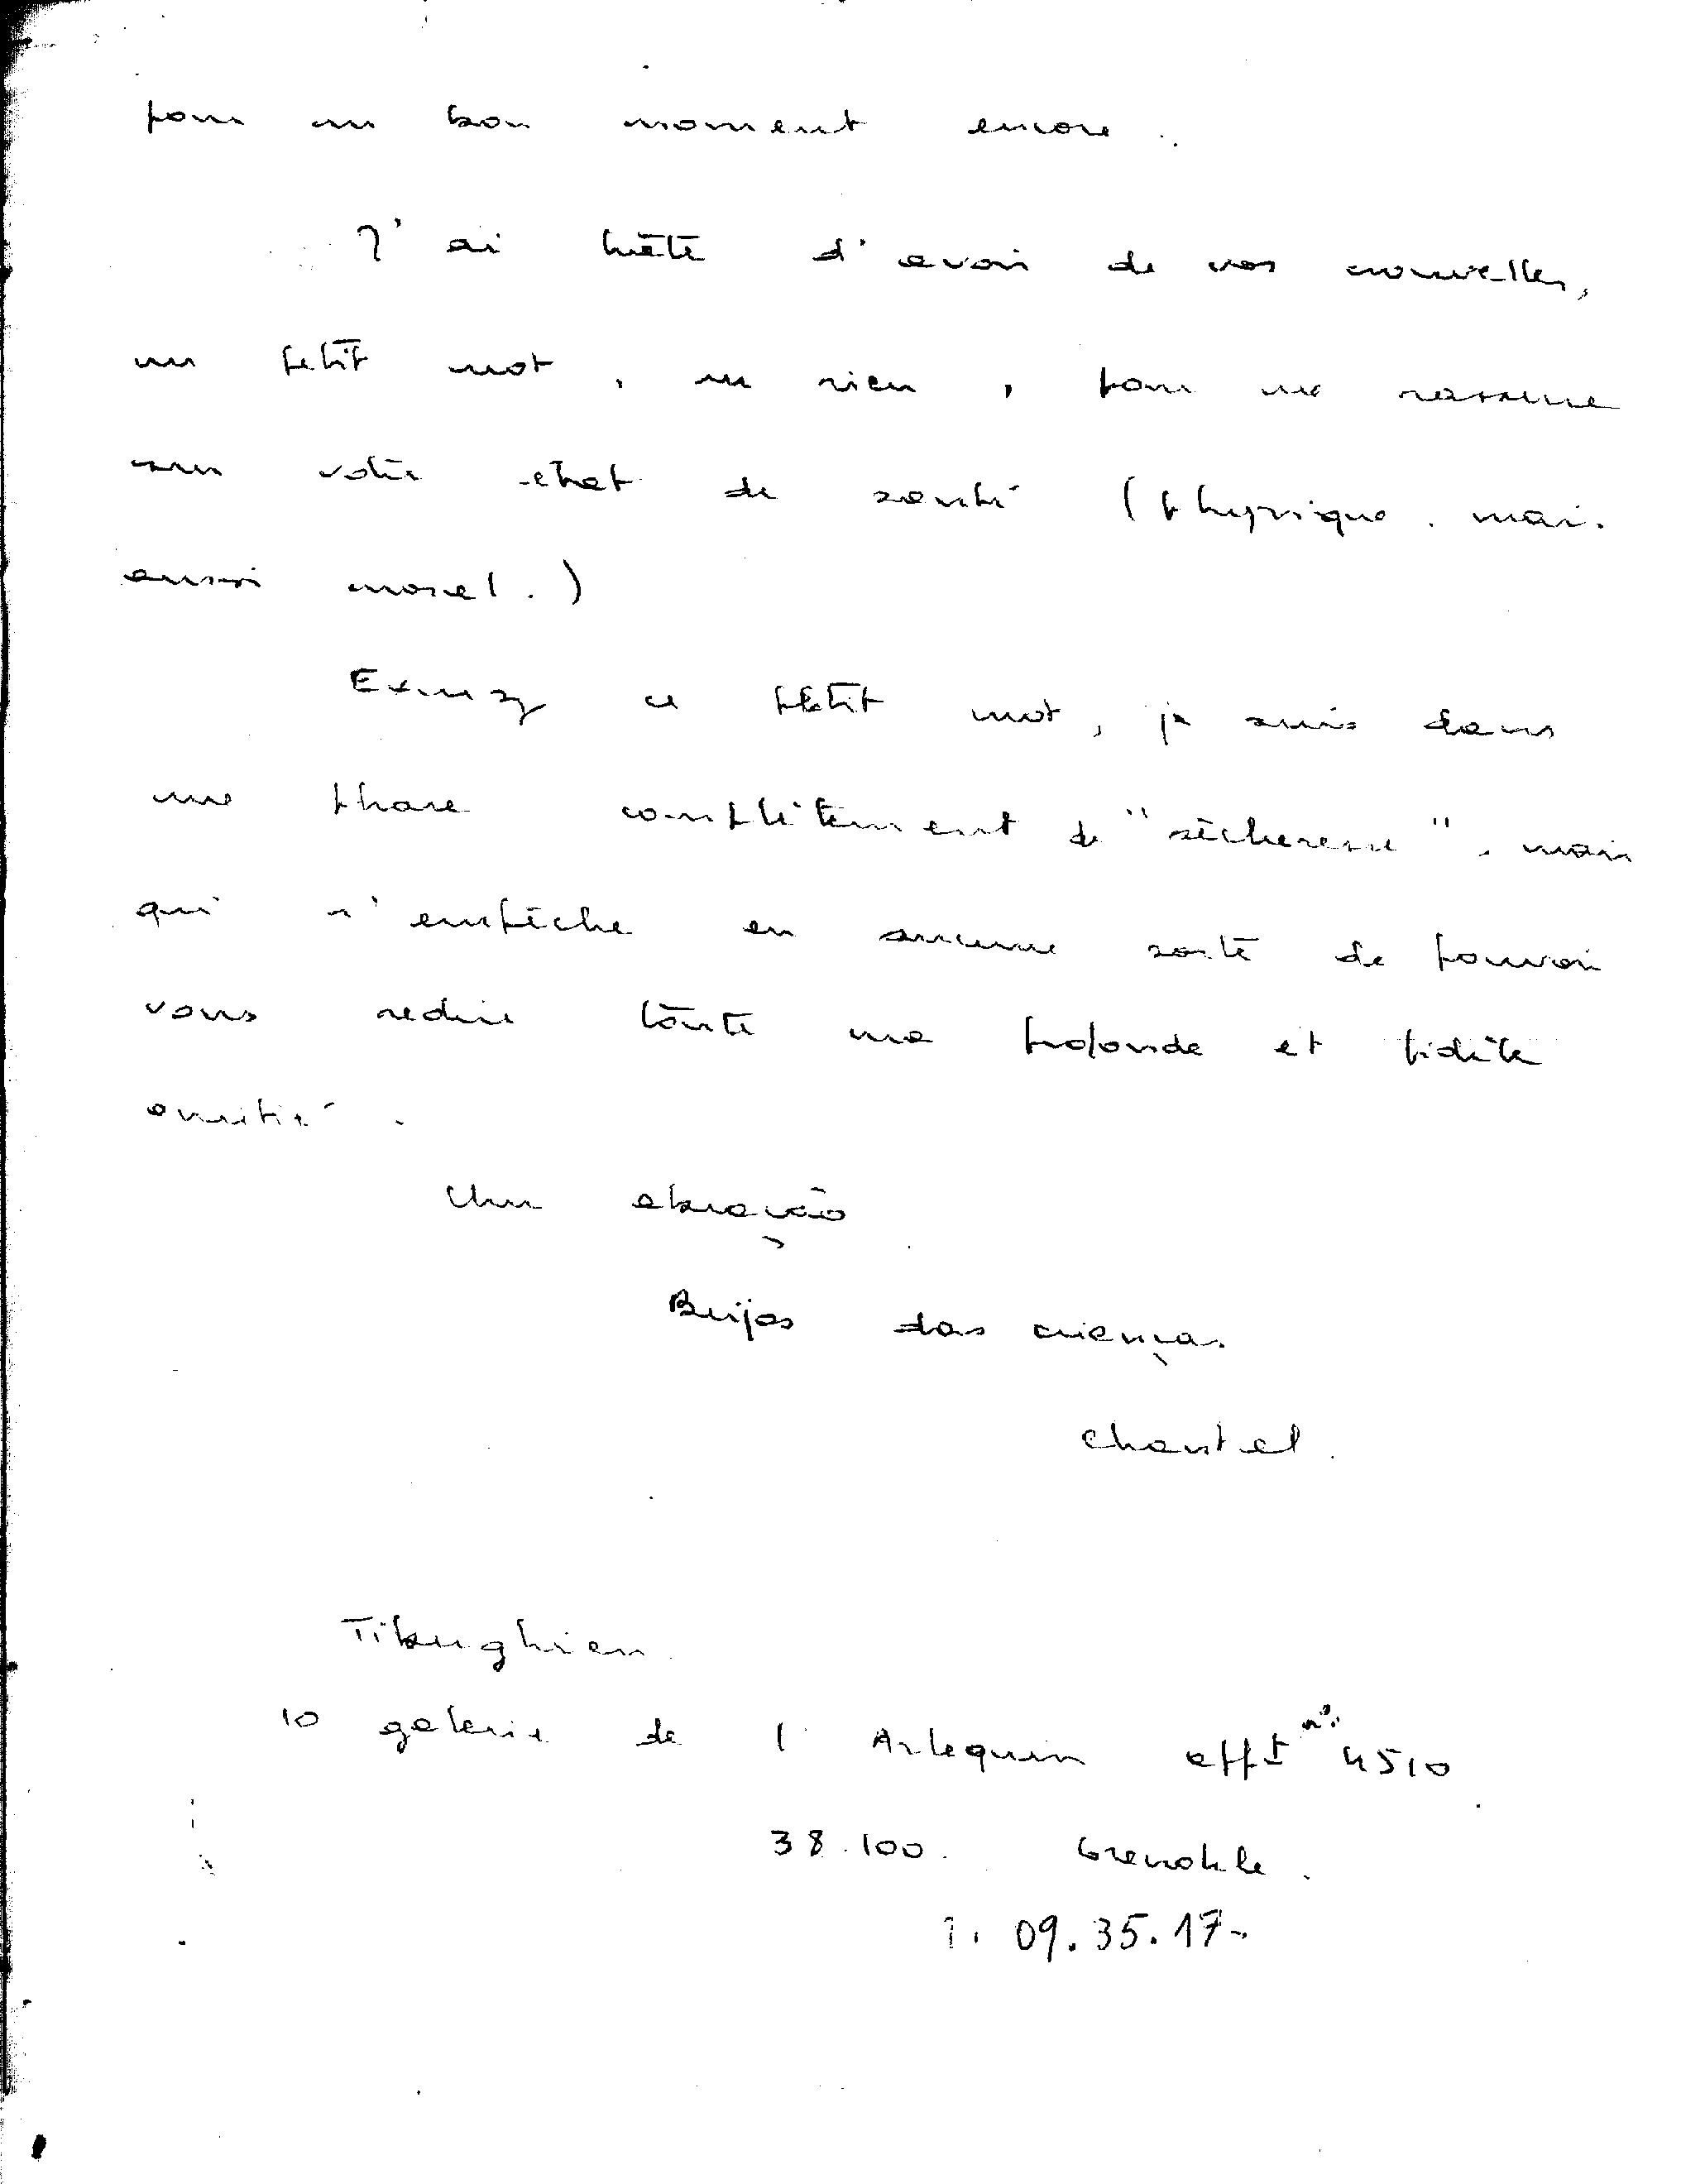 pour un bon moment encore.
J'ai hâte d'avoir de vos nouvelles,
un petit mot, un rien, pour me rassurer
sur votre état de santé (physique. mais
aussi moral.)
Excusez ce petit mot, je suis dans
une phase complètement de "sècheresse", mais
qui n'empêche en aucune sorte de pouvoir
vous redire toute ma profonde et fidèle
amitié.
Um abração
Beijos das crianças.
Chantal.
Tiberghien
10 galerie de l'Arlequin appt n° 4510
38.100. Grenoble.
T. 09.35.17-